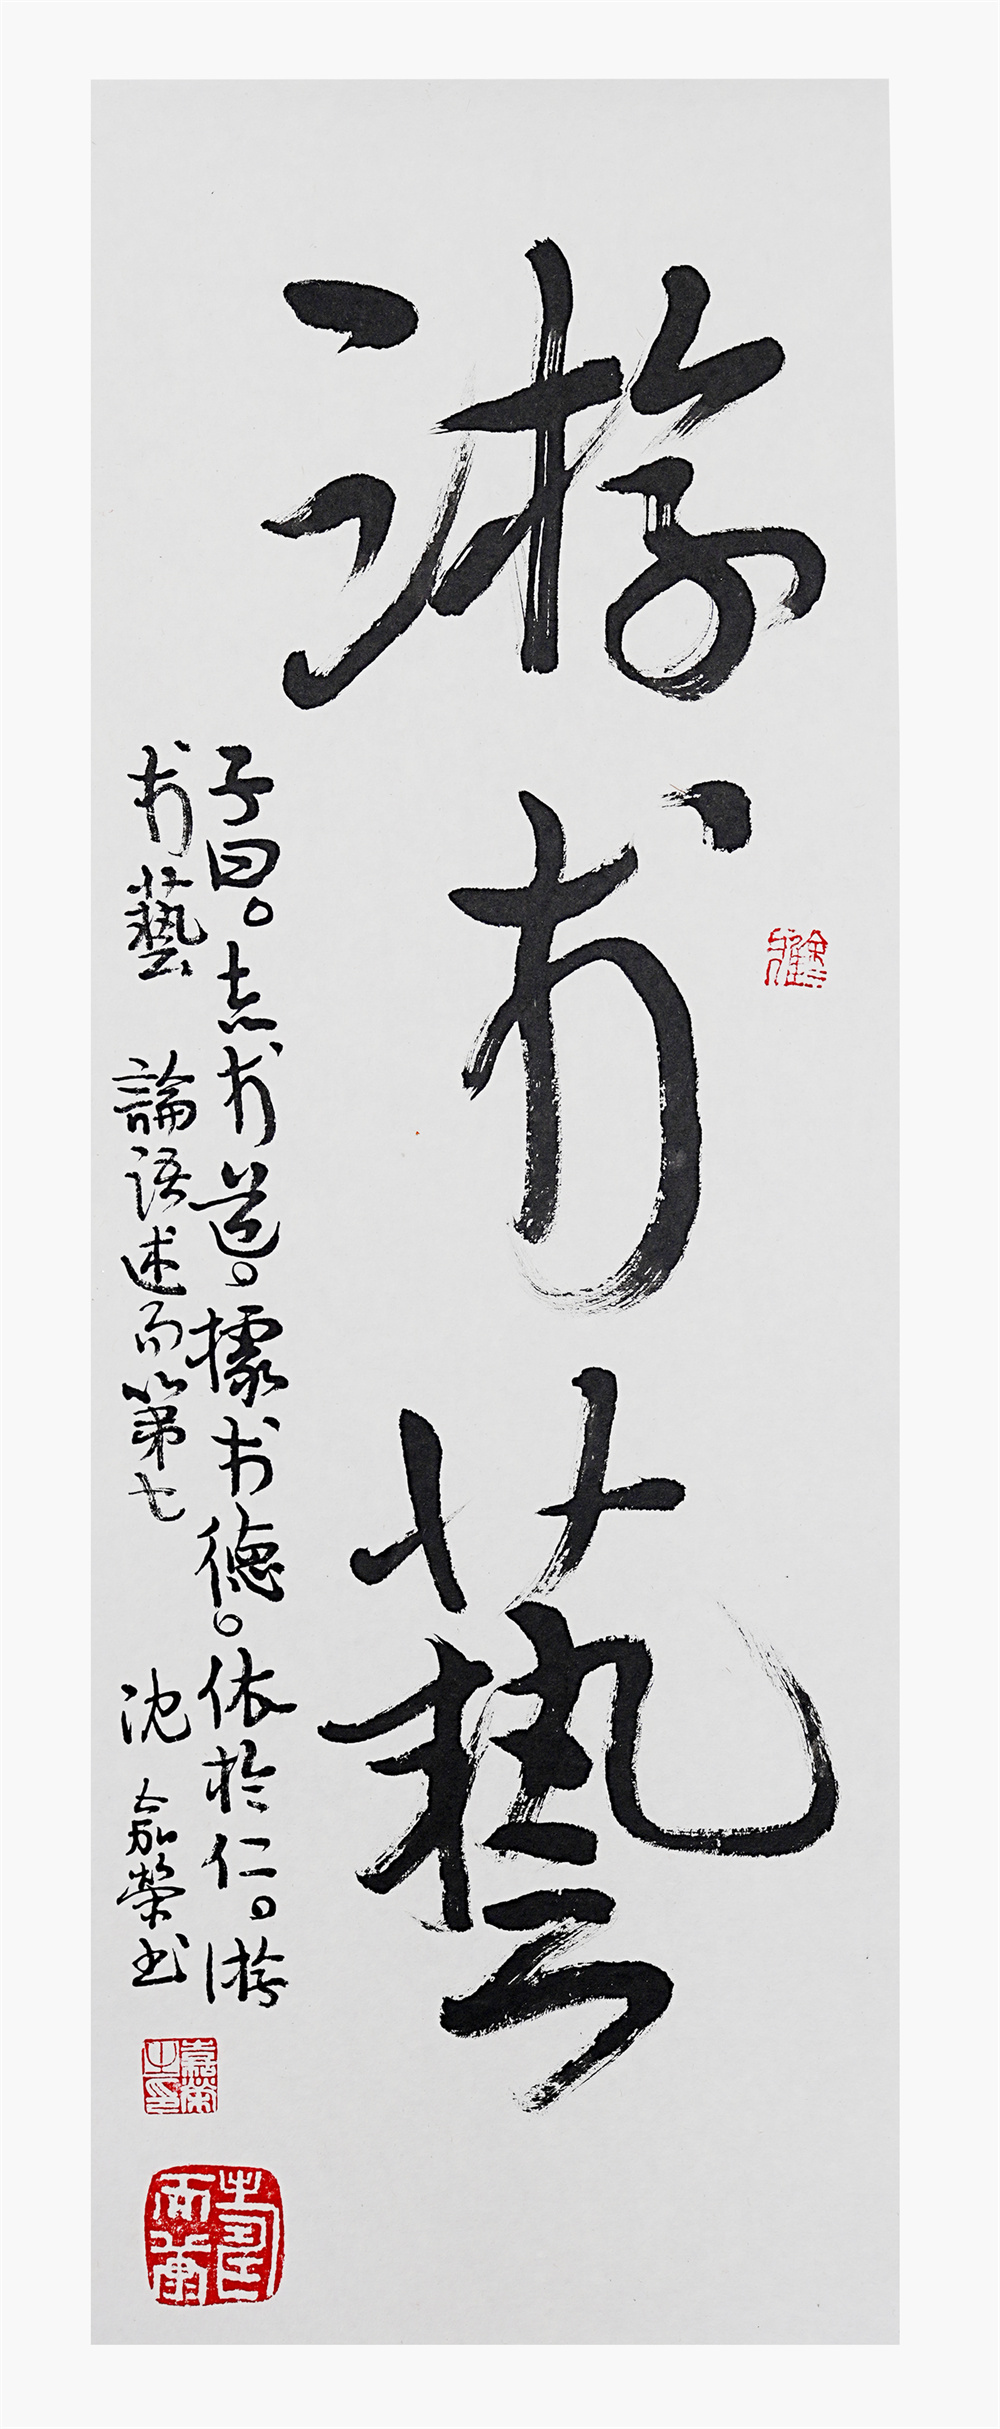 游於藝
子曰。志於道。據於德。依於仁。游
於藝 論語述而第七 沈嘉榮书
嘉榮之印